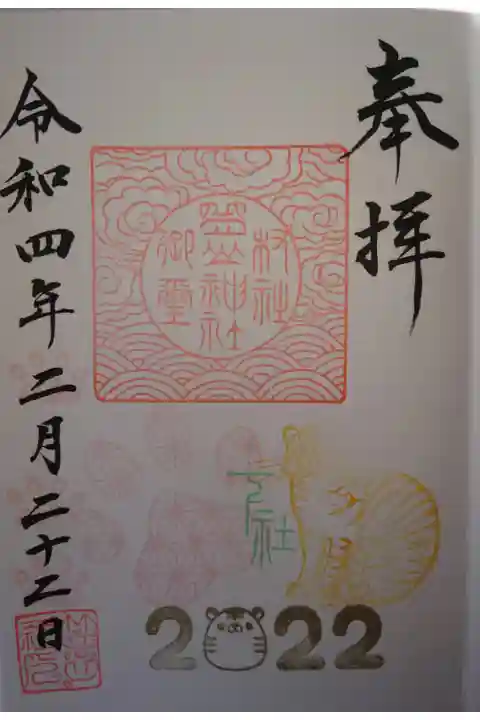 奉拝
村社
神社
御璽
社
令和四年二月二十二日
2022